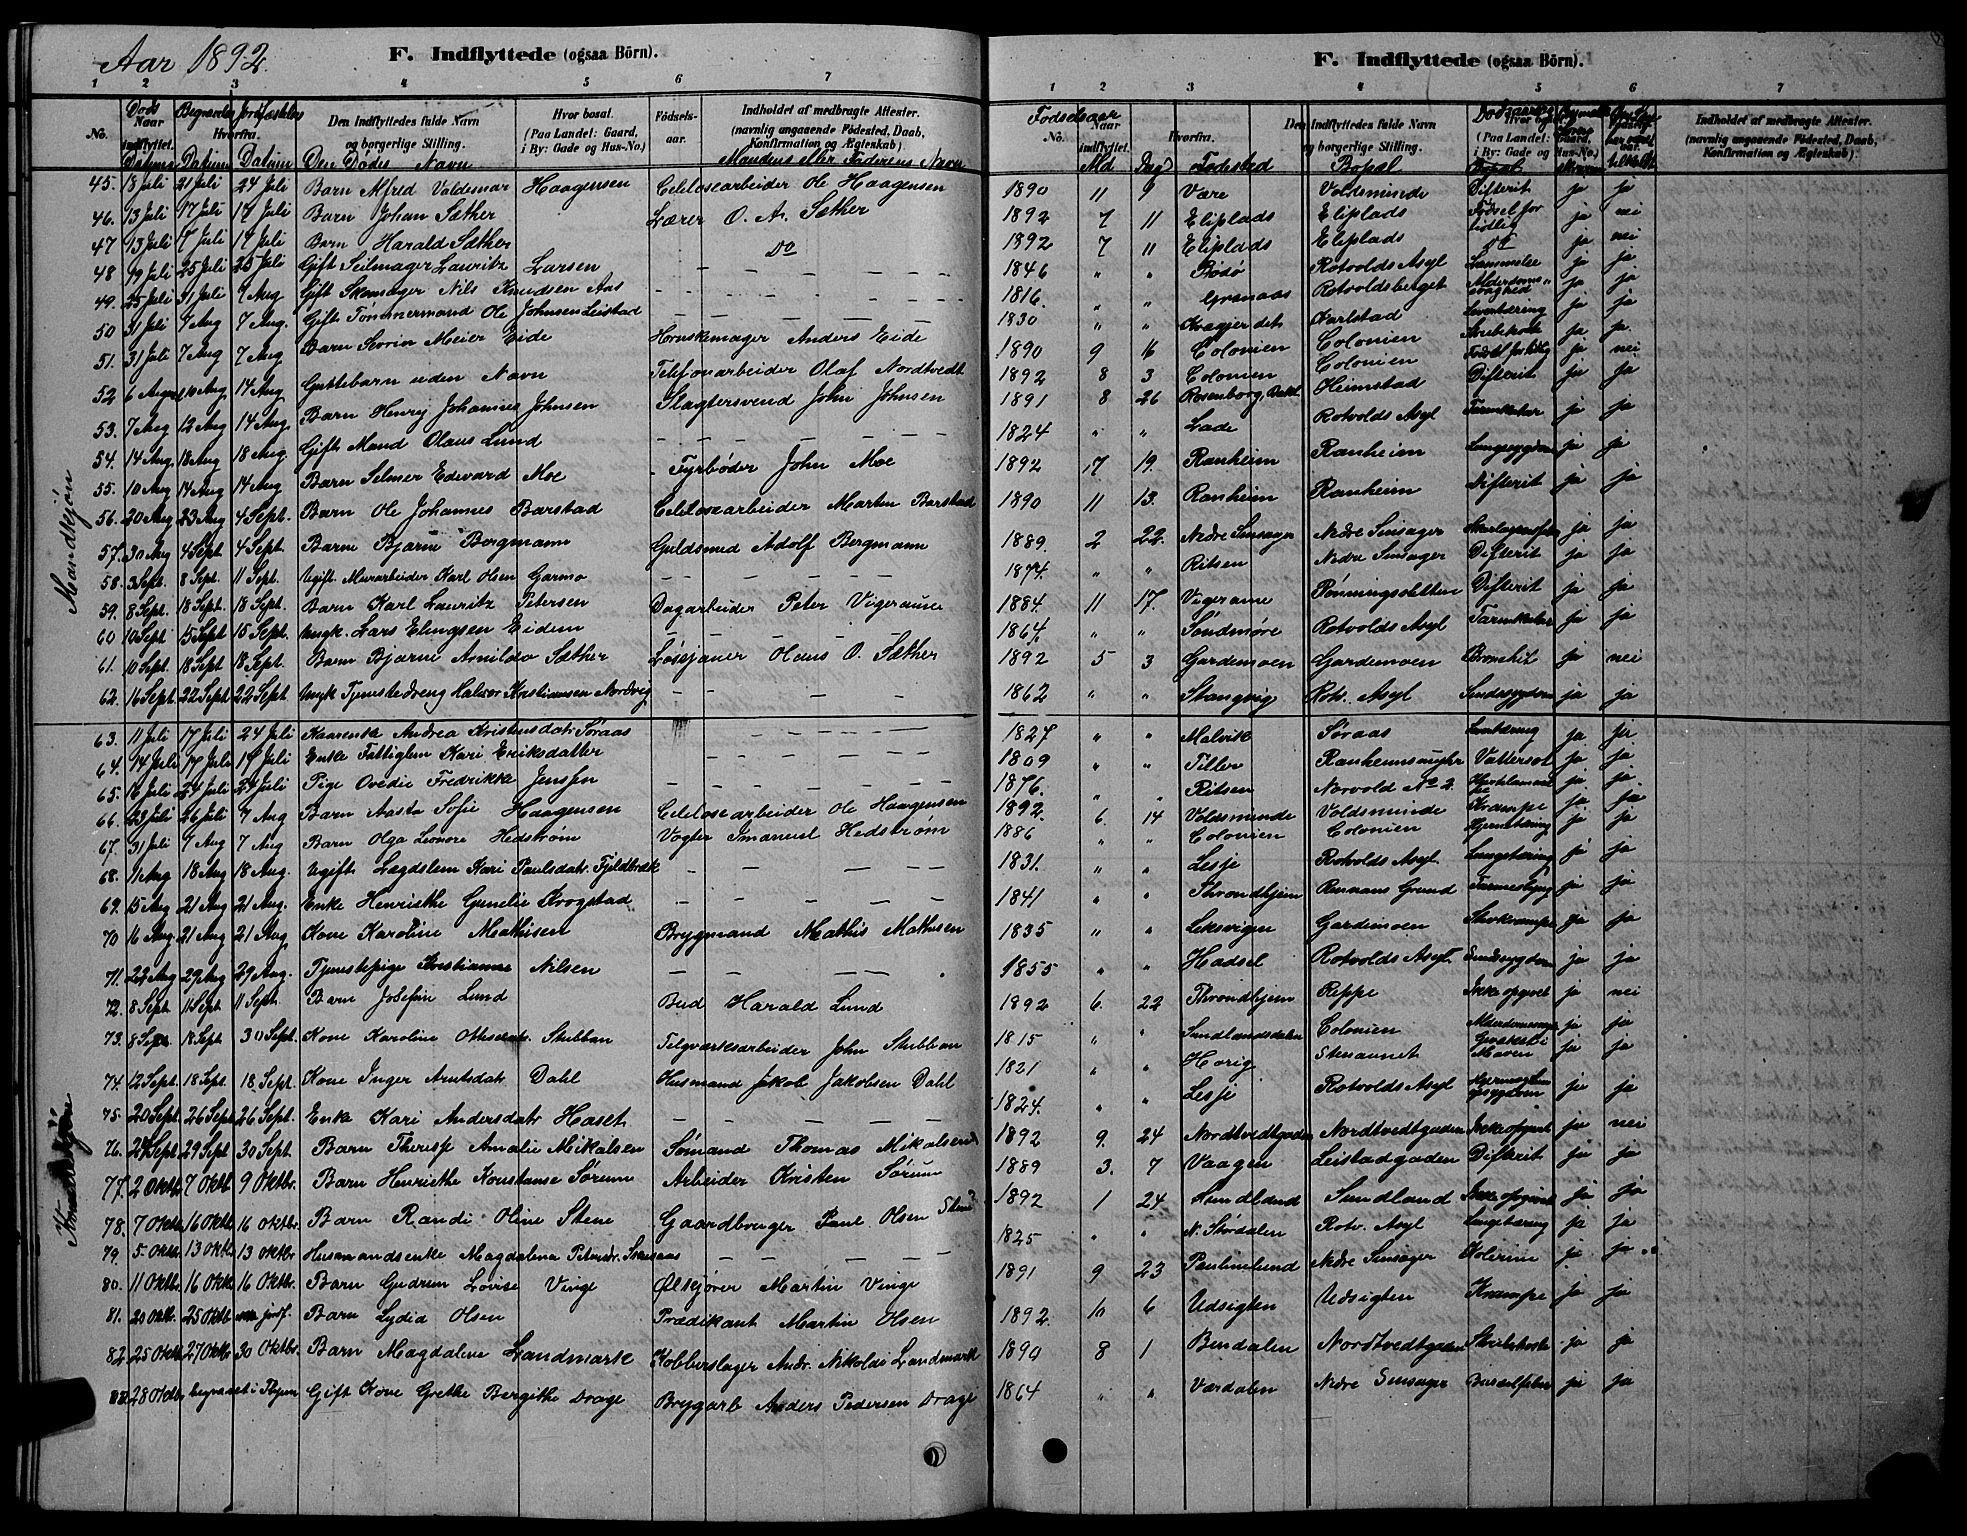 Aar 1892.
F. Indflyttede (ogsaa Börn).
1 2 3 4 5 6 7
No.
Naar indflyttet.
Hvorfra.
Den Indflyttedes fulde Navn og borgerlige Stilling.
Hvor bosat. (Paa Landet: Gaard, i By: Gade og Hus-No.)
Fødsels-aar.
Indholdet af medbragte Attester. (navnlig angaaende Födested, Daab, Konfirmation og Ægteskab)
Døds Datum Begravelses Datum Jordfæstelses Datum Den Dødes Navn Mandens eller Faderens Navn
Mandkjøn
45. 18 Juli 21 Juli 24 Juli Barn Alfred Valdemar Haagensen Celulosearbeider Ole Haagensen
46. 13 Juli 17 Juli 17 Juli Barn Johan Sæther Lærer O. A. Sæther
47 13 Juli 17 Juli 17 Juli Barn Harald Sæther Do
48 19 Juli 25 Juli 25 Juli Gift Seilmager Lauritz Larsen
49. 25 Juli 31 Juli 7 Aug Gift Skomager Nils Knudsen Aas
50 31 Juli 7 Aug 7 Aug. Gift Tømmermand Ole Johnsen Leistad
51. 31 Juli 7 Aug 7 Aug Barn Sverin Meier Eide Hornskemager Anders Eide
52 6 Aug 14 Aug Guttebarn uden Navn Telefonarbeider Olaf Nordtvedt
53. 7 Aug 12 Aug 14 Aug. Barn Henry Johannes Johnsen Slagtersvend John Johnsen
54. 14 Aug. 18 Aug 18 Aug. Gift Mand Olaus Lund
55. 10 Aug 14 Aug 14 Aug Barn Selmer Edevard Moe Fyrbøder John Moe
56. 20 Aug 23 Aug 4 Sept. Barn Ole Johannes Barstad Celulosearbeider Morten Barstad
57. 30 Aug 4 Sept 4 Sept. Barn Bjarne Bergmann Guldsmed Adolf Bergmann
58. 3 Sept. 8 Sept. 11 Sept. Ugift Murarbeider Karl Olsen Garmo
59. 8 Sept. 18 Sept. 18 Sept. Barn Karl Lauritz Petersen Dagarbeider Peter Vigeraune
60 10 Sept 15 Sept 15 Sept. Ungk. Lars Elingsen Eidem
61. 10 Sept. 18 Sept. 18 Sept. Barn Bjarne Arnildo Sæther Løssjauer Olaus O. Sæther
62. 16 Sept. 22 Sept 22 Sept Ungk Tjenestedreng Halvor Kristiansen Nordvig
Kvindekjøn
63. 11 Juli 17 Juli 24 Juli Kaarenke Andrea Kristensdatr Søraas
64. 14 Juli 17 Juli 19 Juli Enke Fattiglem Kari Eriksdatter
65. 18 Juli 24 Juli 24 Juli Pige Ovedie Fredrikke Jenssen
66. 23 Juli 26 Juli 7 Aug Barn Aasta Sofie Haagensen Celulosearbeider Ole Haagensen
67. 31 Juli 7 Aug 7 Aug Barn Olga Leonore Hedstrøm Vogter Imanuel Hedstrøm
68. 11 Aug 18 Aug 18 Aug. Ugift Lagdslem Kari Paulsdatr. Fjeldbræk
69. 15 Aug 21 Aug 21 Aug. Enke Henriette Gunelie Krogstad
70 16 Aug. 21 Aug 21 Aug Kone Karoline Mathisen Brygmand Mathis Mathisen
71. 22 Aug 29 Aug 29 Aug. Tjenestepige Kristianse Nilsen
72. 8 Sept. 11 Sept 11 Sept. Barn Josefine Lund Bud Harald Lund
73. 8 Sept. 18 Sept 30 Sept. Kone Karoline Stubban Telgværksarbeider John Stubban
74. 12 Sept. 18 Sept 18 Sept. Kone Inger Arntsdatr Dahl Husmand Jakob Jakobsen Dahl
75. 20 Sept. 26 Sept 26 Sept. Enke Kari Andersdatr Haset
76. 24 Sept. 29 Sept 30 Sept. Barn Therese Amalie Mikalsen Sømand Thomas Mikalsen
77. 2 Oktbr. 7 Oktb 9 Oktbr. Barn Henriette Konstanse Sørum Arbeider Kristen Sørum
78. 7 Oktbr 16 Oktbr 16 Oktbr. Barn Randi Oline Stene Gaardbruger Paul Olsen Stene
79. 5 Oktbr 13 Oktbr 13 Oktbr Husmandsenke Magdalena Petersdr.
80. 11 Oktbr 16 Oktbr 16 Oktbr. Barn Gudrun Lovise Vinge Ølkjører Martin Vinge
81. 20 Oktbr. 25 Oktb jordf. Barn Lydia Olsen Prædikant Martin Olsen
82 25 Oktbr 27 Oktbr 30 Oktbr. Barn Magdalene Landmark Kobberslager Andr. Nikolai Landmark
83 28 Oktbr begravet i Thjem Gift Kone Grethe Bergithe Drage Brygarb Anders Pedersen Drage
F. Indflyttede (ogsaa Börn).
1 2 3 4 5 6 7
No.
Naar indflyttet.
Hvorfra.
Den Indflyttedes fulde Navn og borgerlige Stilling.
(Paa Landet: Gaard, i By: Gade og Hus-No.)
Indholdet af medbragte Attester. (navnlig angaaende Födested, Daab, Konfirmation og Ægteskab)
Fødselsaar Md Dag Fødested Bopæl Dødsaarsag
1890 11 9 Være Voldsminde Difterit ja ja
1892 7 11 Eliplads Eliplads Fødsel for tidlig ja nei
1892 7 11 Eliplads Eliplads Do ja nei
1846 " " Bodø Rotvolds Asyl ja ja
1816. " " Grønaas Rotvoldsberget ja ja
1830 " " Karlstad ja ja
1890 9 16 Colonien Colonien ja ja
1892 8 3 Colonien Colonien Fødsel for tidlig ja nei
1891 8 26 Rosenborg, Heimstad Difterit ja ja
1824 " " Lade Rotvolds Asyl Tarmkatar ja ja
1892 7 19. Ranheim Ranheim Lungesygdom ja ja
1890 11 13. Ranheim Ranheim Difterit ja ja
1889. 2 22 Nedre Sensager Nedre Sensager ja ja
1874. " " Ritsen Nedre Sensager Difterit ja ja
1884. 11 17. Vigeraune Rønningsletten Difterit ja ja
1864 " " Søndmøre Rotvolds Asyl Tarmkatar ja ja
1892 5 3 Gardemoen Gardemoen Bronchit ja nei
1862 " " Stangvig Rotv. Asyl Sindssygdom ja ja
1827 " " Malvik Søraas ja ja
1809 " " Tiller Vattersot ja ja
1876. " " Ritsen Norvold No 2 ja ja
1892. 6. 14 Voldsminde Voldsminde Krampe ja ja
1886 " " Colonien Colonien ja ja
1831. " " Lesje Rotvolds Asyl Lungetæring ja ja
1841 " " Throndhjem Grund ja ja
1835 " " Leksvigen Gardemoen ja ja
1855 " " Hadsel Rotvolds Asyl Sindssygdom ja ja
1892 6. 22 Throndhjem Reppe Ikke opgivet ja nei
1815 " " Sundlandsdalen Colonien ja ja
1821 " " Horig Stenaunet Maven ja ja
1824. " " Lesje Rotvolds Asyl ja ja
1892 9. 24 Nordtvedtgaden Nordtvedtgaden Ikke opgivet ja nei
1889 3. 7 Vaagen Leistadgaden Difterit ja ja
1892 1 24 Sundland Sundland Ikke opgivet ja ja
1825 " " N. Størdalen Rotv. Asyl Lungetæring ja ja
1891 9 23 Paulinelund Nedre Sensager Kolerine ja ja
1892. 10 6 Udsigten Udsigten Krampe ja ja
1890 8 1 Bindalen Nordtvedtgaden Strubehoste ja ja
1864 " " Værdalen Nedre Sensager Barselfeber ja ja